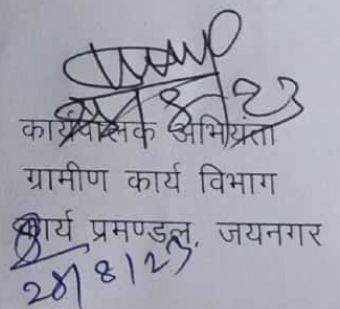 कार्यपालक अभियंता
ग्रामीण कार्य विभाग
कार्य प्रमण्डल, जयनगर
28/8/23